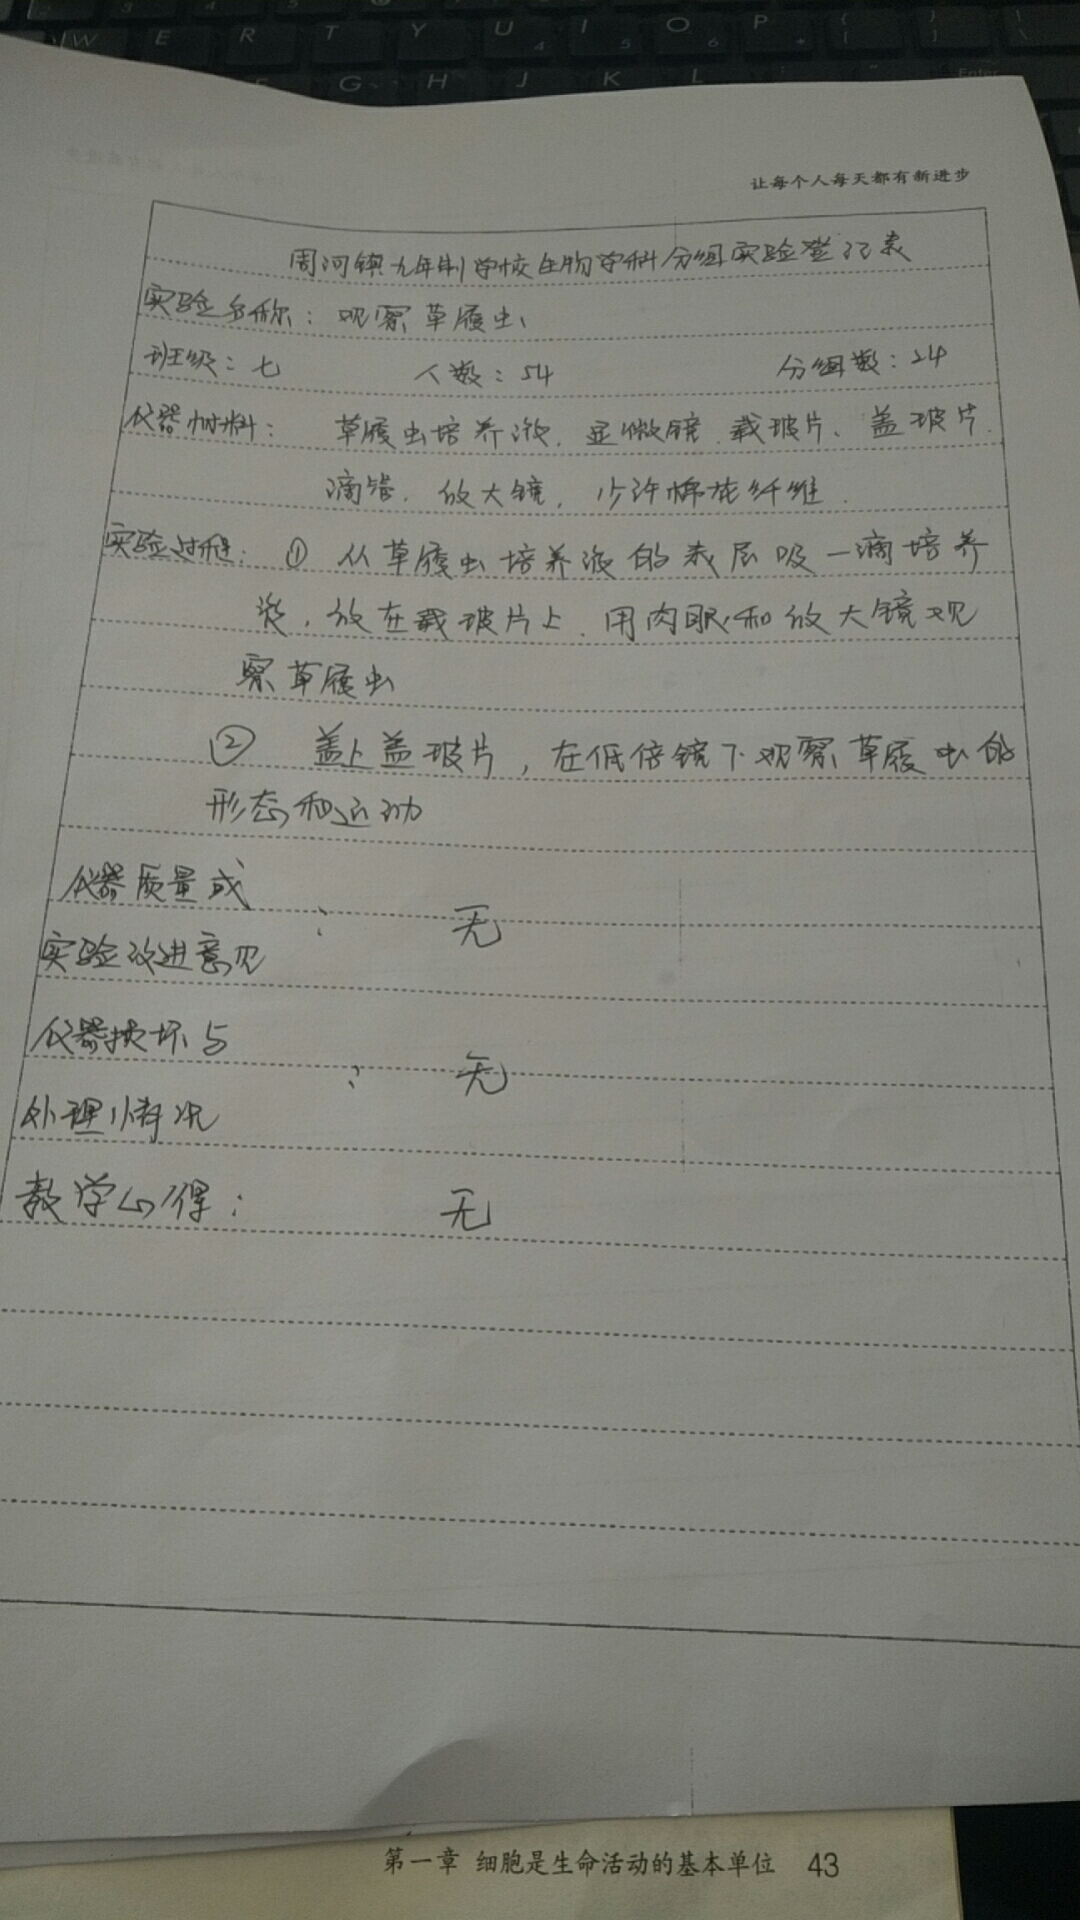 让每个人每天都有新进步
周河镇九年制学校生物学科分组实验登记表
实验名称：观察草履虫
班级：七 人数：54 分组数：24
仪器材料： 草履虫培养液、显微镜、载玻片、盖玻片、
滴管、放大镜、少许棉花纤维.
实验过程：① 从草履虫培养液的表层吸一滴培养
液，放在载玻片上.用肉眼和放大镜观
察草履虫
② 盖上盖玻片，在低倍镜下观察草履虫的
形态和运动
仪器质量或
： 无
实验改进意见
仪器损坏与
： 无
处理情况
教学心得： 无
第一章 细胞是生命活动的基本单位 43